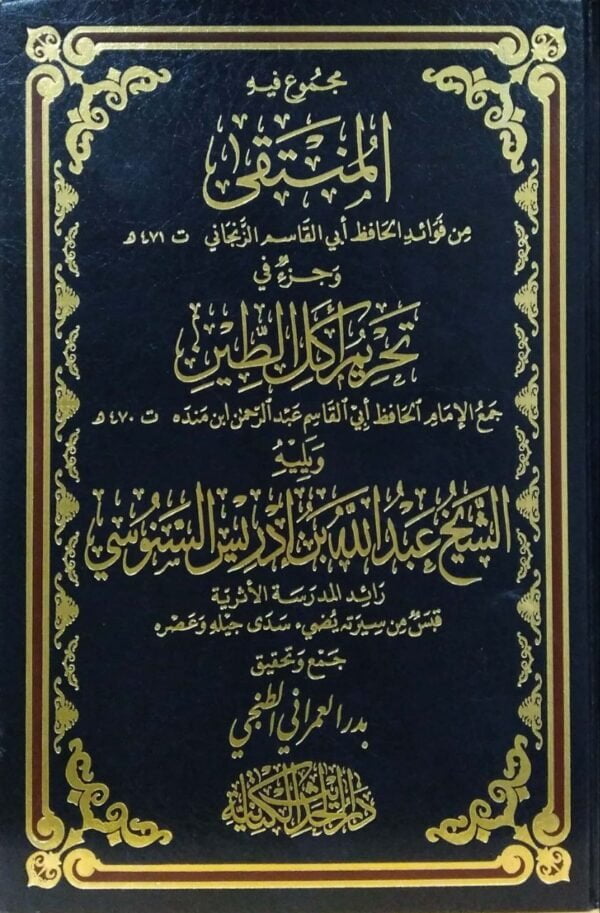 مجموع فيه
المُنتَقى
مِن فَوَائدِ الحَافظ أبي القَاسم الزَّنجَاني ت ٤٧١ هـ
وَجزءٌ في
تَحْرِيْمِ أَكْلِ الطِّيْنِ
جَمعُ الإمَامِ الحَافظِ أبي القَاسِمِ عَبدِ الرَّحمنِ ابن مَندَه ت ٤٧٠ هـ
وَيَليْهُ
الشَّيخُ عَبدُ اللَّهِ بنُ إِدْرِيسَ السَّنُوسي
رَائد المَدرَسَة الأثرية
قبَسٌ مِن سِيرَته يُضيء سَدَى جيْله وَعَصْره
جمَع وَتحقيق
بدر العمراني الطنجي
دار الحديث الكتانية